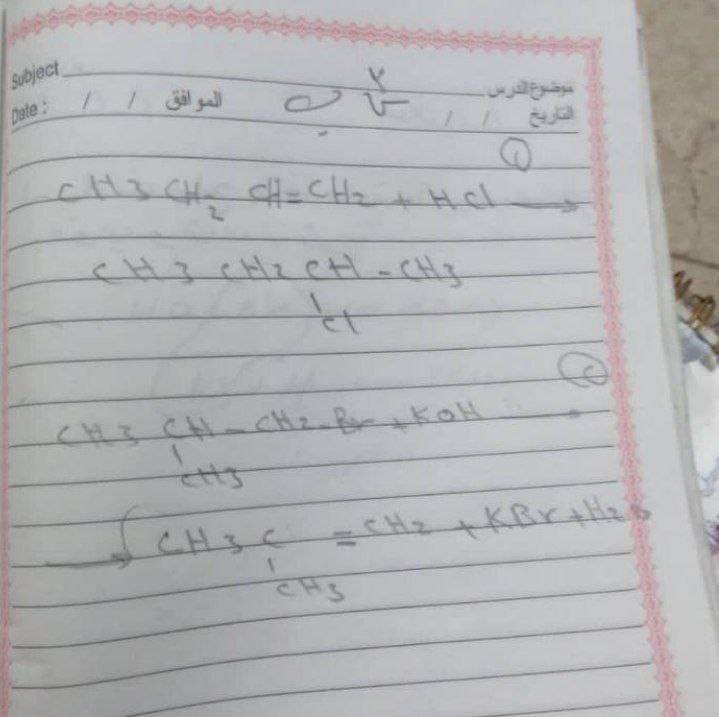 Subject موضوع الدرس
Date : / / الموافق / / التاريخ
س٢ ب
١
CH3 CH2 CH=CH2 + HCl →
CH3 CH2 CH-CH3
Cl
٢
CH3 CH-CH2-Br + KOH →
CH3
→ CH3 C = CH2 + KBr + H2O
CH3